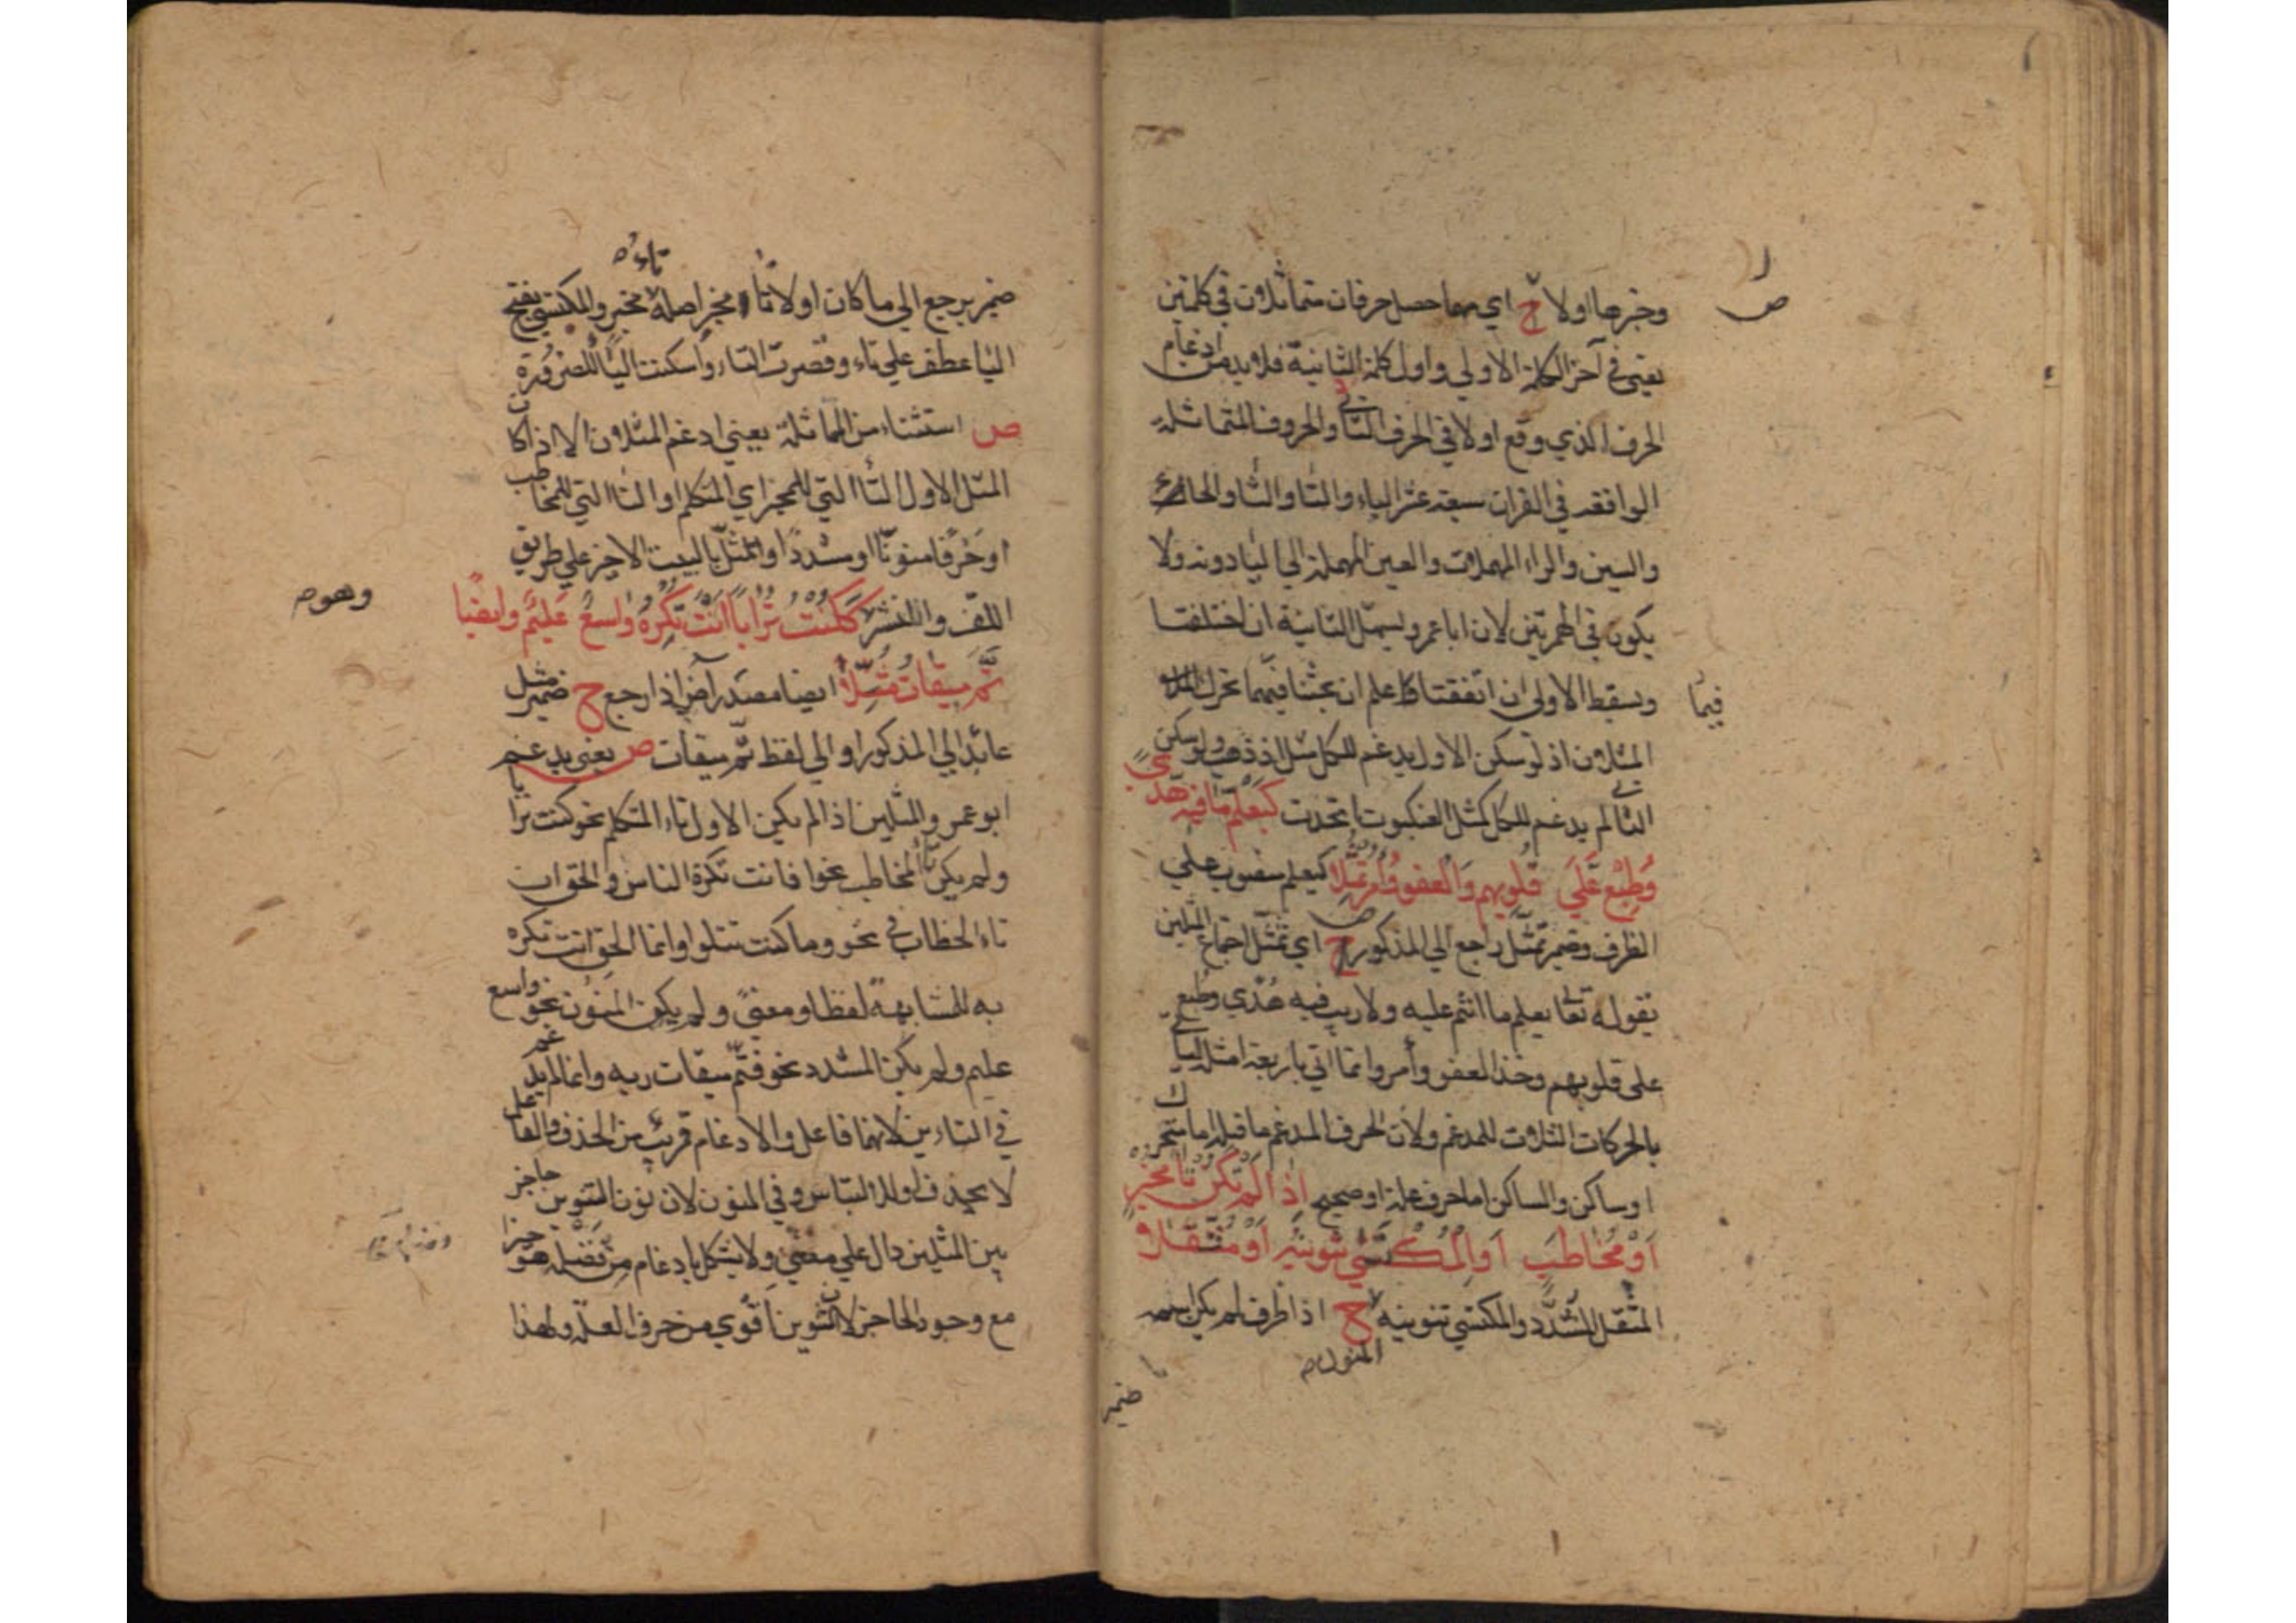 وخبرها اولا ح اي مهما حصل حرفان متماثلان في كلمتين
يعني في آخر الكلمة الاولي واول كلمة الثانية فلا بد من ادغام
الحرف الذي وقع اولا في الحرف الثاني والحروف المتماثلة
الواقعه في القران سبعة عشر الباء والتا والثا والحا
والسين والراء المهملات والعين المهملة الي اليا دونه ولا
يكون في الهمزتين لان ابا عمرو يسهل الثانية ان اختلفتا
ويسقط الاولي ان اتفقتا واعلم ان بحثنا فيهما تحرك
فيما
المثلان اذ لو سكن الاول يدغم للكل مثل اذ ذهب ولو سكن
الثاني لم يدغم للكل كمثل العنكبوت اتخذت كيعلم ما فيه هدي
وطبع علي قلوبهم والعفو وأمر تمثلا كيعلم منصوب علي
الظرف وضمير تمثل راجع الي المذكور ح اي تمثل اجتماع المثلين
بقوله تعا يعلم ما انتم عليه ولا ريب فيه هدي وطبع
علي قلوبهم وخذ العفو وأمر وانما اتي باربعة امثلة لياتي
بالحركات الثلاث للمدغم ولان الحرف المدغم ما قبله اما متحرك
او ساكن والساكن اما حرف علة او صحيح اذا لم تكن تا مخبر
او مخاطب او المكتسي تنوينه او مثقلا
المثقل المشدد والمكتسي تنوينه ح اذا ظرف لم يكن اسمه
المنون
ضمير
ضمير يرجع الي ما كان اولا تا مخبر اصله تاء مخبر والمكتسي بفتح
اليا عطف علي تاء وقصرت التاء واسكنت اليا للضرورة
ص استثناء من المماثلة يعني ادغم المثلان الا اذا كان
المثل الاول التا التي للمخبر اي المتكلم او التا التي للمخاطب
او حرفا منونا او مشددا والمثل بالبيت الاخير علي طريق
اللف والنشر ككنت ترابا انت تكره واسع عليم وايضا
وهو
تم ميقات مثلا ايضا مصدر آض اذا رجع ح ضمير مثل
عائد الي المذكور او الي لفظ تم ميقات ص يعني يدغم
ابو عمرو المثلين اذا لم يكن الاول تاء المتكلم نحو كنت ترابا
ولم يكن تا المخاطب نحو افانت تكره الناس والحق ان
تاء الخطاب في نحو وما كنت تتلوا وانما الحق انت تكره
به للمشابهة لفظا ومعني ولم يكن المنون نحو واسع
عليم ولم يكن المشدد نحو فتم ميقات ربه وانما لم يدغم
في التاءين لانهما فاعل والادغام قريب من الحذف والفاعل
لا يحذف او للالتباس وفي المنون لان نون التنوين حاجز
بين المثلين دال علي معني ولا يشكل بادغام من فضله هو خيرا
مع وجود الحاجز لان التنوين اقوي من حرف العلة ولهذا